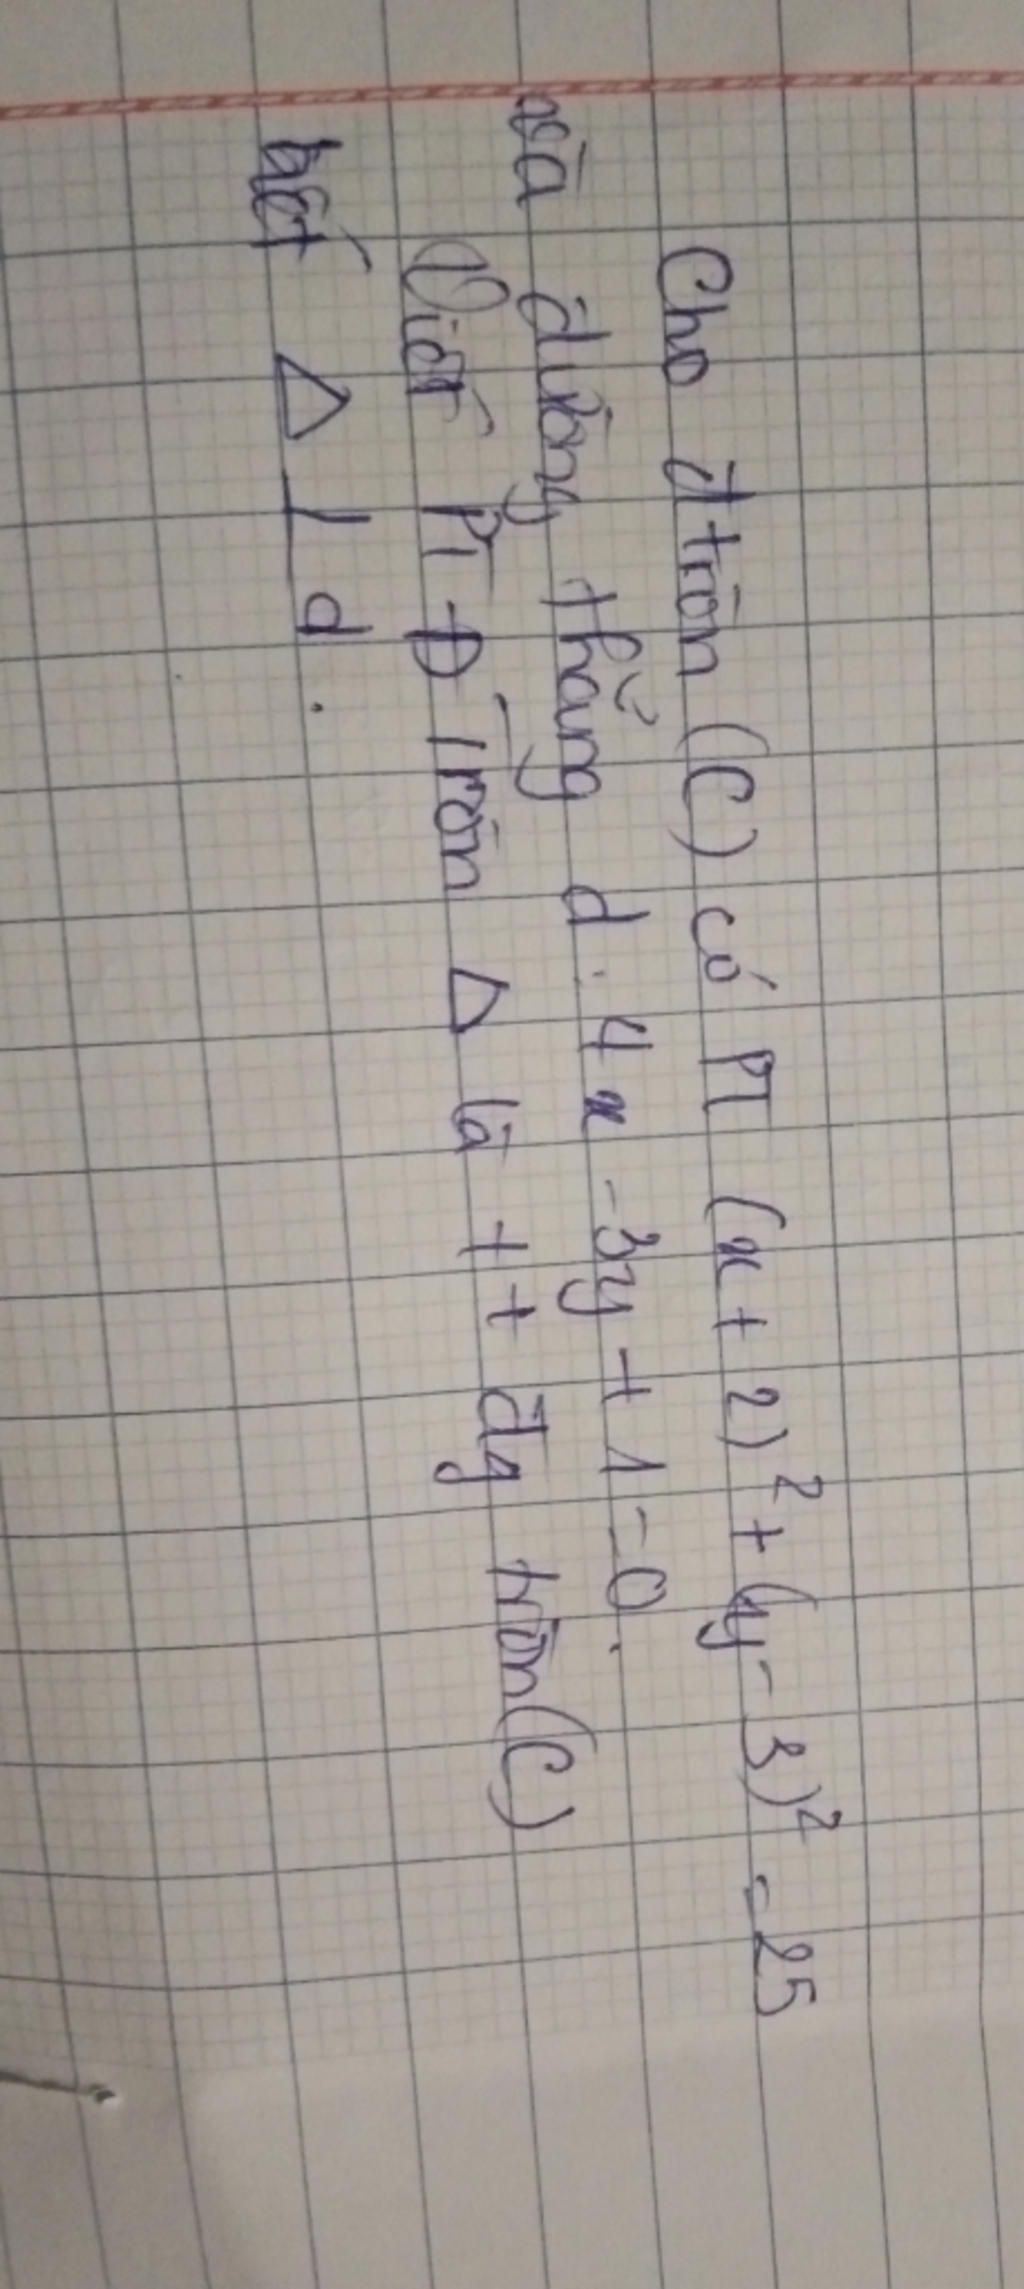 Cho đ tròn (C) có PT (x + 2)² + (y - 3)² = 25
và đường thẳng d : 4x - 3y + 1 = 0.
Viết PT Đ Tròn Δ là tt đg tròn (C)
biết Δ ⊥ d.